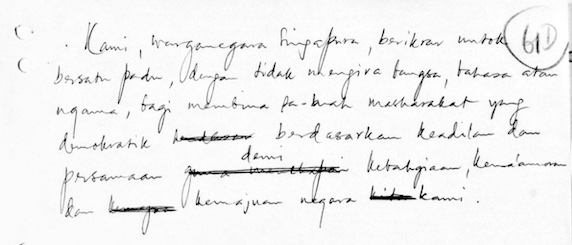 Kami, warganegara Singapura, berikrar untuk
bersatu padu, dengan tidak mengira bangsa, bahasa atau
ugama, bagi membina sa-buah masharakat yang
demokratik berdasarkan keadilan dan
demi
persamaan guna mencapai kebahgiaan, kema'amoran
dan kemajuan negara kita kami.